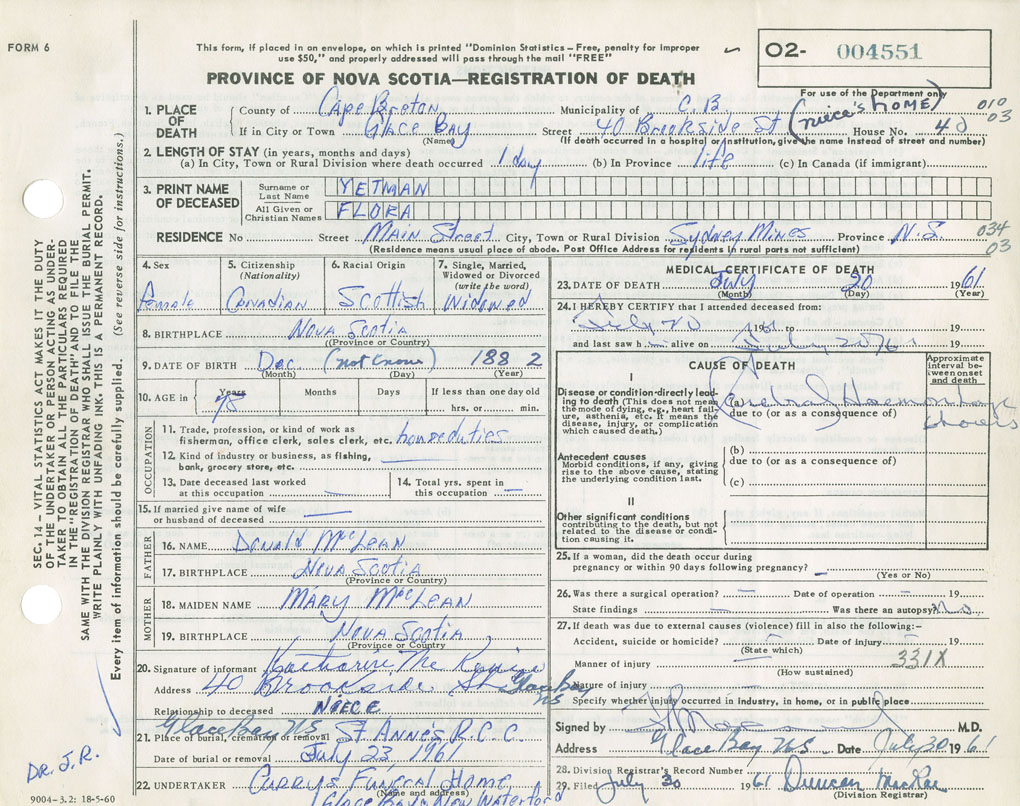 FORM 6
This form, if placed in an envelope, on which is printed "Dominion Statistics – Free, penalty for improper
use $50," and properly addressed will pass through the mail "FREE"
O2- 004551
PROVINCE OF NOVA SCOTIA—REGISTRATION OF DEATH
For use of the Department only
1. PLACE OF DEATH County of Cape Breton Municipality of C.B. (niece's HOME) 010 03
If in City or Town Glace Bay Street 40 Brookside St House No. 40
(Name) (If death occurred in a hospital or institution, give the name instead of street and number)
2. LENGTH OF STAY (in years, months and days)
(a) In City, Town or Rural Division where death occurred 1 day (b) In Province life (c) In Canada (if immigrant)
3. PRINT NAME OF DECEASED Surname or Last Name YETMAN
All Given or Christian Names FLORA
RESIDENCE No Street Main Street City, Town or Rural Division Sydney Mines Province N.S. 034 03
(Residence means usual place of abode. Post Office Address for residents of rural parts not sufficient)
4. Sex Female
5. Citizenship (Nationality) Canadian
6. Racial Origin Scottish
7. Single, Married, Widowed or Divorced (write the word) Widowed
8. BIRTHPLACE Nova Scotia
(Province or Country)
9. DATE OF BIRTH Dec. (not known) 1882
(Month) (Day) (Year)
10. AGE in Years 78 Months Days If less than one day old
hrs. or min.
OCCUPATION
11. Trade, profession, or kind of work as
fisherman, office clerk, sales clerk, etc. houseduties
12. Kind of industry or business, as fishing,
bank, grocery store, etc.
13. Date deceased last worked
at this occupation
14. Total yrs. spent in
this occupation
15. If married give name of wife
or husband of deceased
FATHER
16. NAME Donald McLean
17. BIRTHPLACE Nova Scotia
(Province or Country)
MOTHER
18. MAIDEN NAME Mary McLean
19. BIRTHPLACE Nova Scotia
(Province or Country
20. Signature of informant Katharine
Address 40 Brookside St Glace Bay NS
Relationship to deceased NIECE
Glace Bay NS
21. Place of burial, cremation or removal St Anne's R.C.C.
Date of burial or removal July 23, 1961
22. UNDERTAKER Curry's Funeral Home
(Name and address)
Glace Bay New Waterford
9004-3.2: 18-5-60
MEDICAL CERTIFICATE OF DEATH
23. DATE OF DEATH July 20 1961
(Month) (Day) (Year)
24. I HEREBY CERTIFY that I attended deceased from:
July 20 1961 to 19
and last saw h alive on July 20/61 19
CAUSE OF DEATH
Approximate interval between onset and death
I
Disease or condition directly leading to death (This does not mean
the mode of dying, e.g., heart failure, asthenia, etc. It means the
disease, injury, or complication
which caused death.)
(a) Haemorrhage hours
due to (or as a consequence of)
Antecedent causes
Morbid conditions, if any, giving
rise to the above cause, stating
the underlying condition last.
(b)
due to (or as a consequence of)
(c)
II
Other significant conditions
contributing to the death, but not
related to the disease or condition causing it.
25. If a woman, did the death occur during
pregnancy or within 90 days following pregnancy?
(Yes or No)
26. Was there a surgical operation? Date of operation 19
State findings Was there an autopsy? No.
27. If death was due to external causes (violence) fill in also the following:–
Accident, suicide or homicide? Date of injury 19
(State which)
331X
Manner of injury
(How sustained)
Nature of injury
Specify whether injury occurred in industry, in home, or in public place
Signed by M.D.
Address Glace Bay NS Date July 30 1961
28. Division Registrar's Record Number
29. Filed July 30 1961 Duncan MacRae
(Division Registrar)
SEC. 14 – VITAL STATISTICS ACT MAKES IT THE DUTY
OF THE UNDERTAKER OR PERSON ACTING AS UNDER-
TAKER TO OBTAIN ALL THE PARTICULARS REQUIRED
IN THE "REGISTRATION OF DEATH" AND TO FILE THE
SAME WITH THE DIVISION REGISTRAR WHO SHALL ISSUE THE BURIAL PERMIT.
WRITE PLAINLY WITH UNFADING INK. THIS IS A PERMANENT RECORD.
Every item of information should be carefully supplied. (See reverse side for instructions.)
DR. J.R.